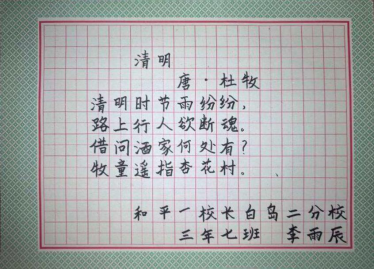 清明
唐·杜牧
清明时节雨纷纷，
路上行人欲断魂。
借问酒家何处有？
牧童遥指杏花村。
和平一校长白岛二分校
三年七班 李雨辰